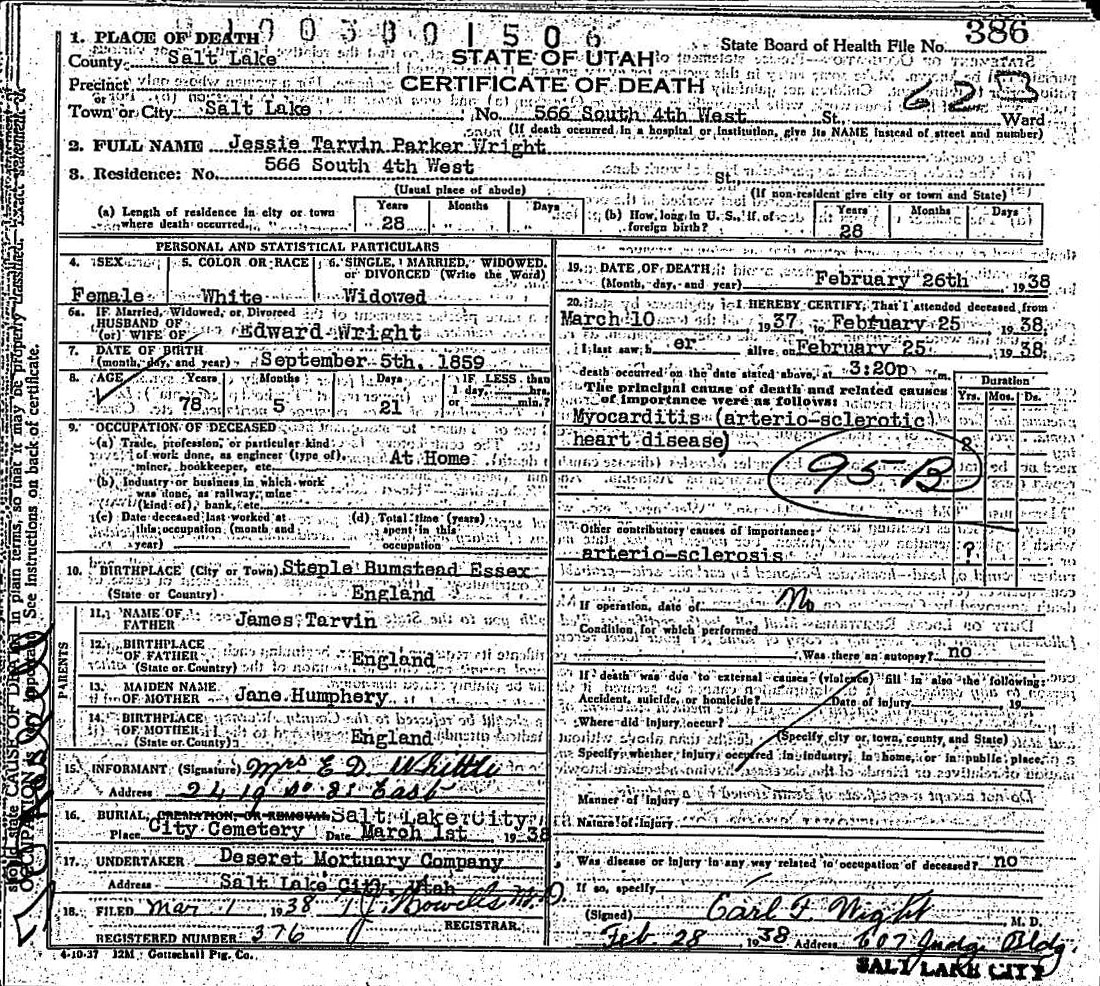 1003801506
1. PLACE OF DEATH
State Board of Health File No. 386
County Salt Lake
STATE OF UTAH
Precinct
CERTIFICATE OF DEATH
or
Town or City Salt Lake No. 566 South 4th West St. Ward
(If death occurred in a hospital or institution, give its NAME instead of street and number)
2. FULL NAME Jessie Tarvin Parker Wright
3. Residence: No. 566 South 4th West St.
(Usual place of abode) (If non-resident give city or town and State)
(a) Length of residence in city or town where death occurred. Years 28 Months Days
(b) How long in U. S., if of foreign birth? Years 28 Months Days
PERSONAL AND STATISTICAL PARTICULARS
4. SEX 5. COLOR OR RACE 6. SINGLE, MARRIED, WIDOWED, or DIVORCED (Write the Word)
Female White Widowed
6a. IF Married, Widowed, or Divorced
HUSBAND OF
(or) WIFE OF Edward Wright
7. DATE OF BIRTH
(month, day, and year) September 5th, 1859
8. AGE Years Months Days IF LESS than
1 day, hrs.
or min.?
78 5 21
9. OCCUPATION OF DECEASED
(a) Trade, profession, or particular kind
of work done, as engineer (type of),
miner, bookkeeper, etc. At Home
(b) Industry or business in which work
was done, as railway, mine
(kind of), bank, etc.
(c) Date deceased last worked at
this occupation (month and
year)
(d) Total time (years)
spent in this
occupation
10. BIRTHPLACE (City or Town) Steple Bumstead Essex
(State or Country) England
PARENTS
11. NAME OF
FATHER James Tarvin
12. BIRTHPLACE
OF FATHER
(State or Country) England
13. MAIDEN NAME
OF MOTHER Jane Humphery
14. BIRTHPLACE
OF MOTHER
(State or County) England
15. INFORMANT (Signature) Mrs E D. Whittle
Address 2419 So 8th East
16. BURIAL, CREMATION, OR REMOVAL Salt Lake City
Place City Cemetery Date March 1st 1938
17. UNDERTAKER Deseret Mortuary Company
Address Salt Lake City, Utah
18. FILED Mar 1 1938 T J Howells M.D.
REGISTRAR.
REGISTERED NUMBER 376
4-10-37 12M Gottschall Ptg. Co.
19. DATE OF DEATH
(Month, day, and year) February 26th 1938
20. I HEREBY CERTIFY, That I attended deceased from
March 10 1937, to February 25 1938.
I last saw h er alive on February 25 1938:
death occurred on the date stated above, at 3:20p m.
The principal cause of death and related causes
of importance were as follows:
Duration
Yrs. Mos. Ds.
Myocarditis (arterio-sclerotic
heart disease) 2
95B
Other contributory causes of importance:
arterio-sclerosis ?
If operation, date of No
Condition for which performed
Was there an autopsy? no
If death was due to external causes (violence) fill in also the following:
Accident, suicide, or homicide? Date of injury, 19
Where did injury occur?
(Specify city or town, county, and State)
Specify whether injury occurred in industry, in home, or in public place,
Manner of injury
Nature of injury
Was disease or injury in any way related to occupation of deceased? no
If so, specify
(Signed) Carl F. Wight M. D.
Feb. 28 1938 Address 607 Judge Bldg.
SALT LAKE CITY
in plain terms, so that it may be properly classified. Exact statement of
should state CAUSE OF DEATH
OCCUPATION is very important. See instructions on back of certificate.